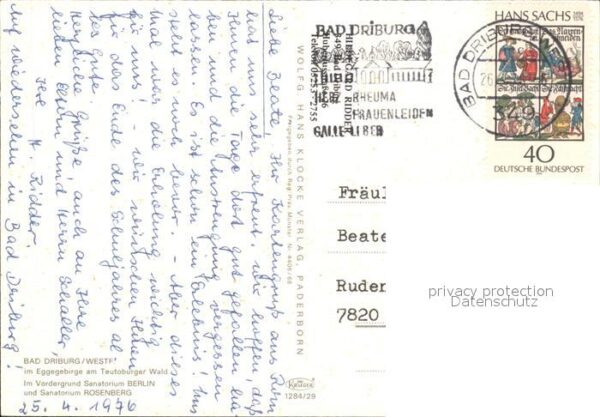 Liebe Beate, Ihr Kartengruß aus Rom
hat uns sehr erfreut, wir hoffen, daß
Ihnen die Tage dort gut gefallen ha-
ben und die Anstrengung vergessen
lassen. Es ist schon ein Erlebnis! Uns
geht es noch besser. - Aber dieses
mal die Erholung wichtig
für das Ende des Schuljahres al-
les Gute - wir wünschen Ihnen
Herzl. Grüße, auch an Ihre
Eltern und Herrn Schaller,
Ihre
H. Ridder.
Auf wiedersehen in Bad Driburg!
25. 4. 1976
BAD DRIBURG/WESTF.
im Eggegebirge am Teutoburger Wald
Im Vordergrund Sanatorium BERLIN
und Sanatorium ROSENBERG
WOLFG. HANS KLOCKE VERLAG, PADERBORN
Freigegeben durch Reg. Präs. Münster Nr. 4406/68
Krüger
1284/29
BAD DRIBURG
HERZ RHEUMA
FRAUENLEIDEN
GALLE-LEBER
BAD DRIBURG
349
HANS SACHS 1494
1576
40
DEUTSCHE BUNDESPOST
Fräul
Beate
Ruden
7820
privacy protection
Datenschutz